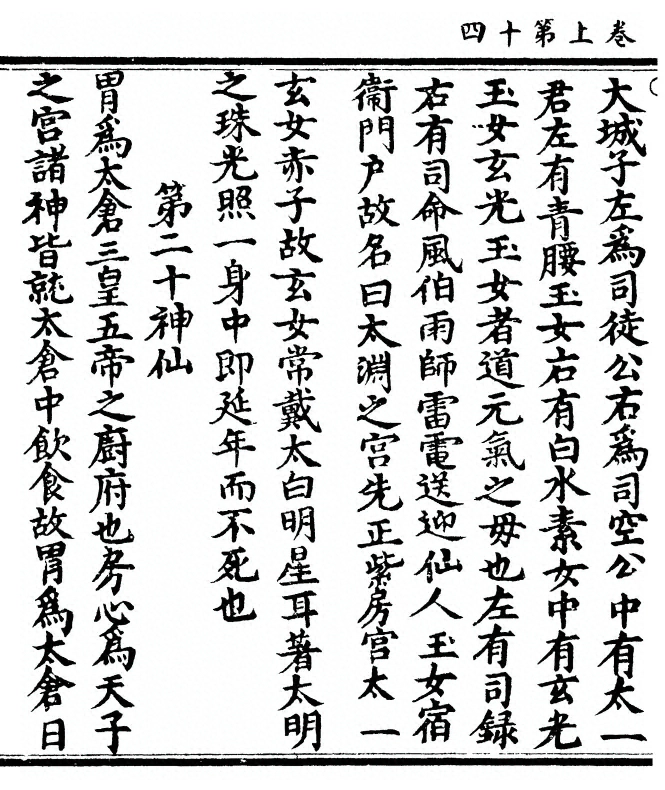 卷上第十四
大城子左爲司徒公右爲司空公中有太一
君左有青腰玉女右有白水素女中有玄光
玉女玄光玉女者道元氣之毋也左有司錄
右有司命風伯雨師雷電送迎仙人玉女宿
衞門户故名曰太淵之宫先正紫房宫太一
玄女赤子故玄女常戴太白明星耳著太明
之珠光照一身中即延年而不死也
第二十神仙
胃爲太倉三皇五帝之廚府也房心爲天子
之宫諸神皆就太倉中飲食故胃爲太倉日